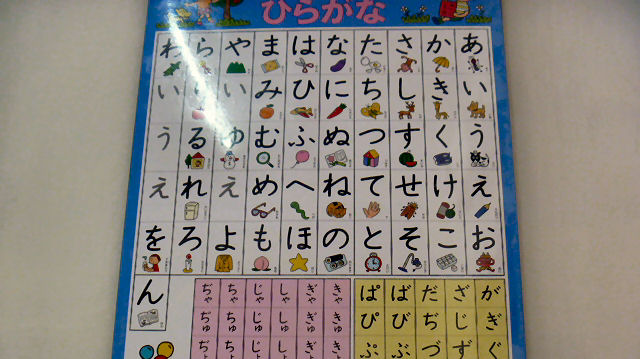 ひらがな
あいうえお
かきくけこ
さしすせそ
たちつてと
なにぬねの
はひふへほ
まみむめも
やいゆえよ
らりるれろ
わいうえを
ん
がぎぐ
ざじず
だぢづ
ばびぶ
ぱぴぷ
きゃ きゅ きょ
ぎゃ ぎゅ ぎょ
しゃ しゅ しょ
じゃ じゅ じょ
ちゃ ちゅ ちょ
ぢゃ ぢゅ ぢょ